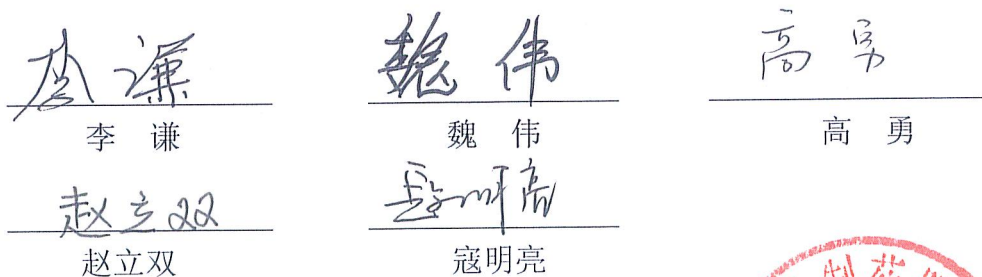 李谦 魏伟 高勇
李 谦 魏 伟 高 勇
赵立双 寇明亮
赵立双 寇明亮
制药